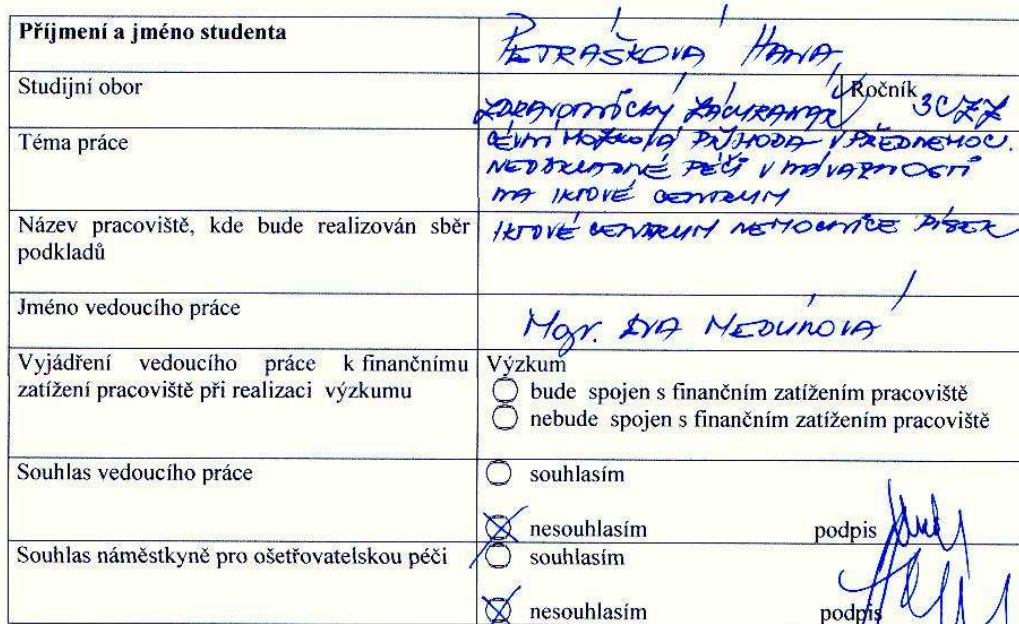 Příjmení a jméno studenta
PETRÁŠKOVÁ HANA
Studijní obor
ZDRAVOTNICKÝ ZÁCHRANÁŘ
Ročník 3CZZ
Téma práce
CÉVNÍ MOZKOVÁ PŘÍHODA V PŘEDNEMOC.
NEODKLADNÉ PÉČI V NÁVAZNOSTI
NA IKTOVÉ CENTRUM
Název pracoviště, kde bude realizován sběr
podkladů
IKTOVÉ CENTRUM NEMOCNICE PÍSEK
Jméno vedoucího práce
Mgr. EVA MEDUNOVÁ
Vyjádření vedoucího práce k finančnímu
zatížení pracoviště při realizaci výzkumu
Výzkum
bude spojen s finančním zatížením pracoviště
nebude spojen s finančním zatížením pracoviště
Souhlas vedoucího práce
souhlasím
nesouhlasím podpis
Souhlas náměstkyně pro ošetřovatelskou péči
souhlasím
nesouhlasím podpis